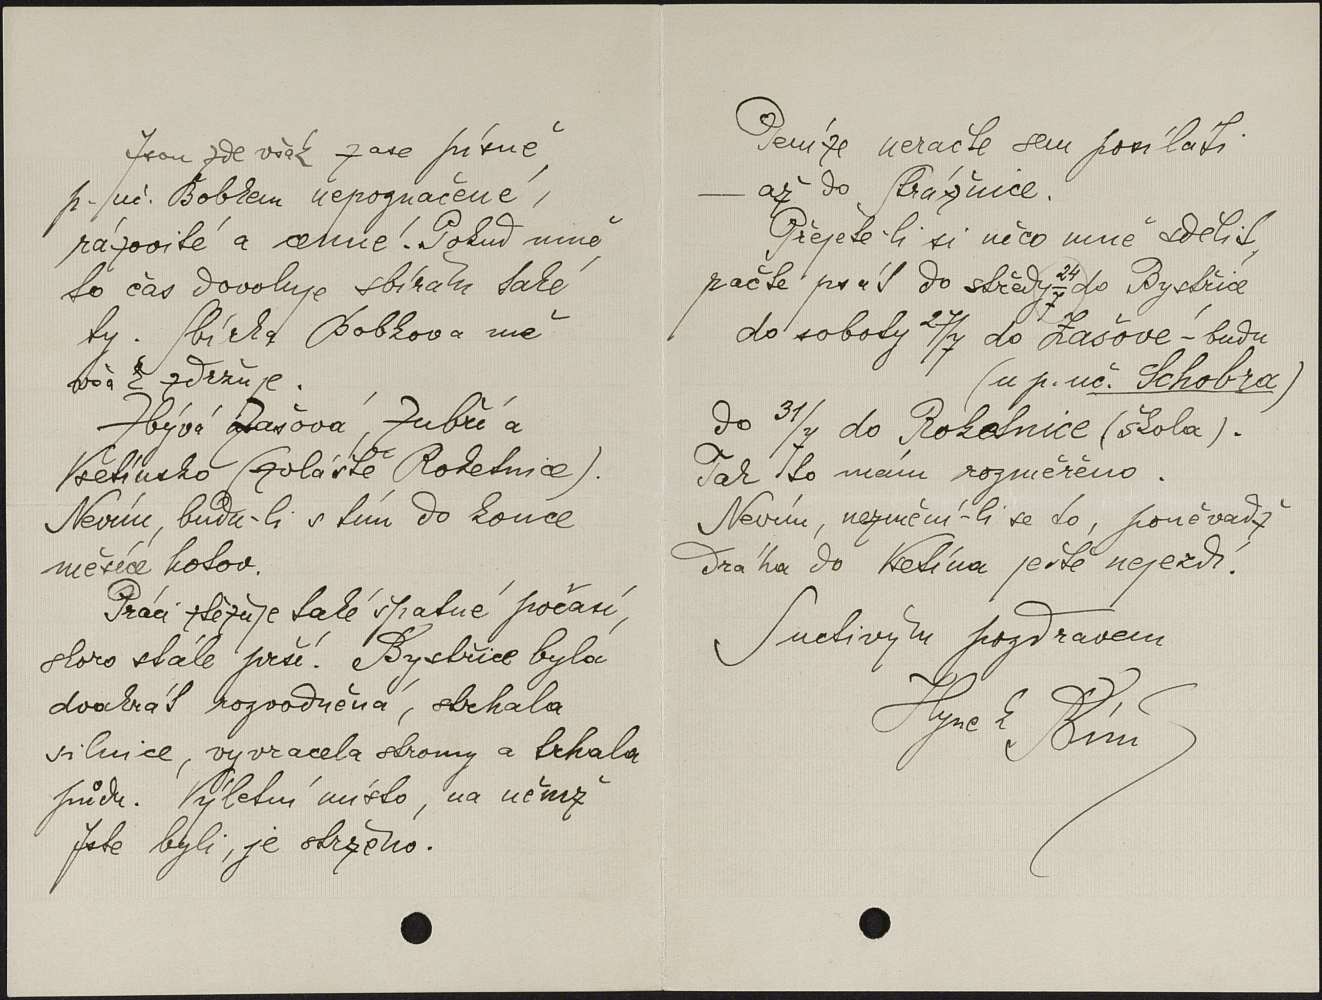 Jsou zde však zase písně,
p. uč. Bobkem nepoznačené,
rázovité a cenné. Pokud mně
to čas dovoluje sbírám také
ty. Sbírka Bobkova mě
však zdržuje.
Zbývá Zašová, Zubří a
Vsetínsko (zvláště Roketnice).
Nevím, budu-li s tím do konce
měsíce hotov.
Práci ztěžuje také špatné počasí,
skoro stále prší. Bystřice byla
dvakrát rozvodněná, strhala
silnice, vyvracela stromy a trhala
půdu. Výletní místo, na němž
jste byli, je strženo.
Peníze neračte sem posílati
— až do Strážnice.
Přejete-li si něco mně sdělit,
račte psát do středy 24/7 do Bystřice
do soboty 27/7 do Zašové - budu
(u p. uč. Schobra)
do 31/7 do Roketnice (škola).
Tak to mám rozměřeno.
Nevím, nezmění-li se to, poněvadž
dráha do Vsetína ještě nejezdí.
S uctivým pozdravem
Hynek Bím